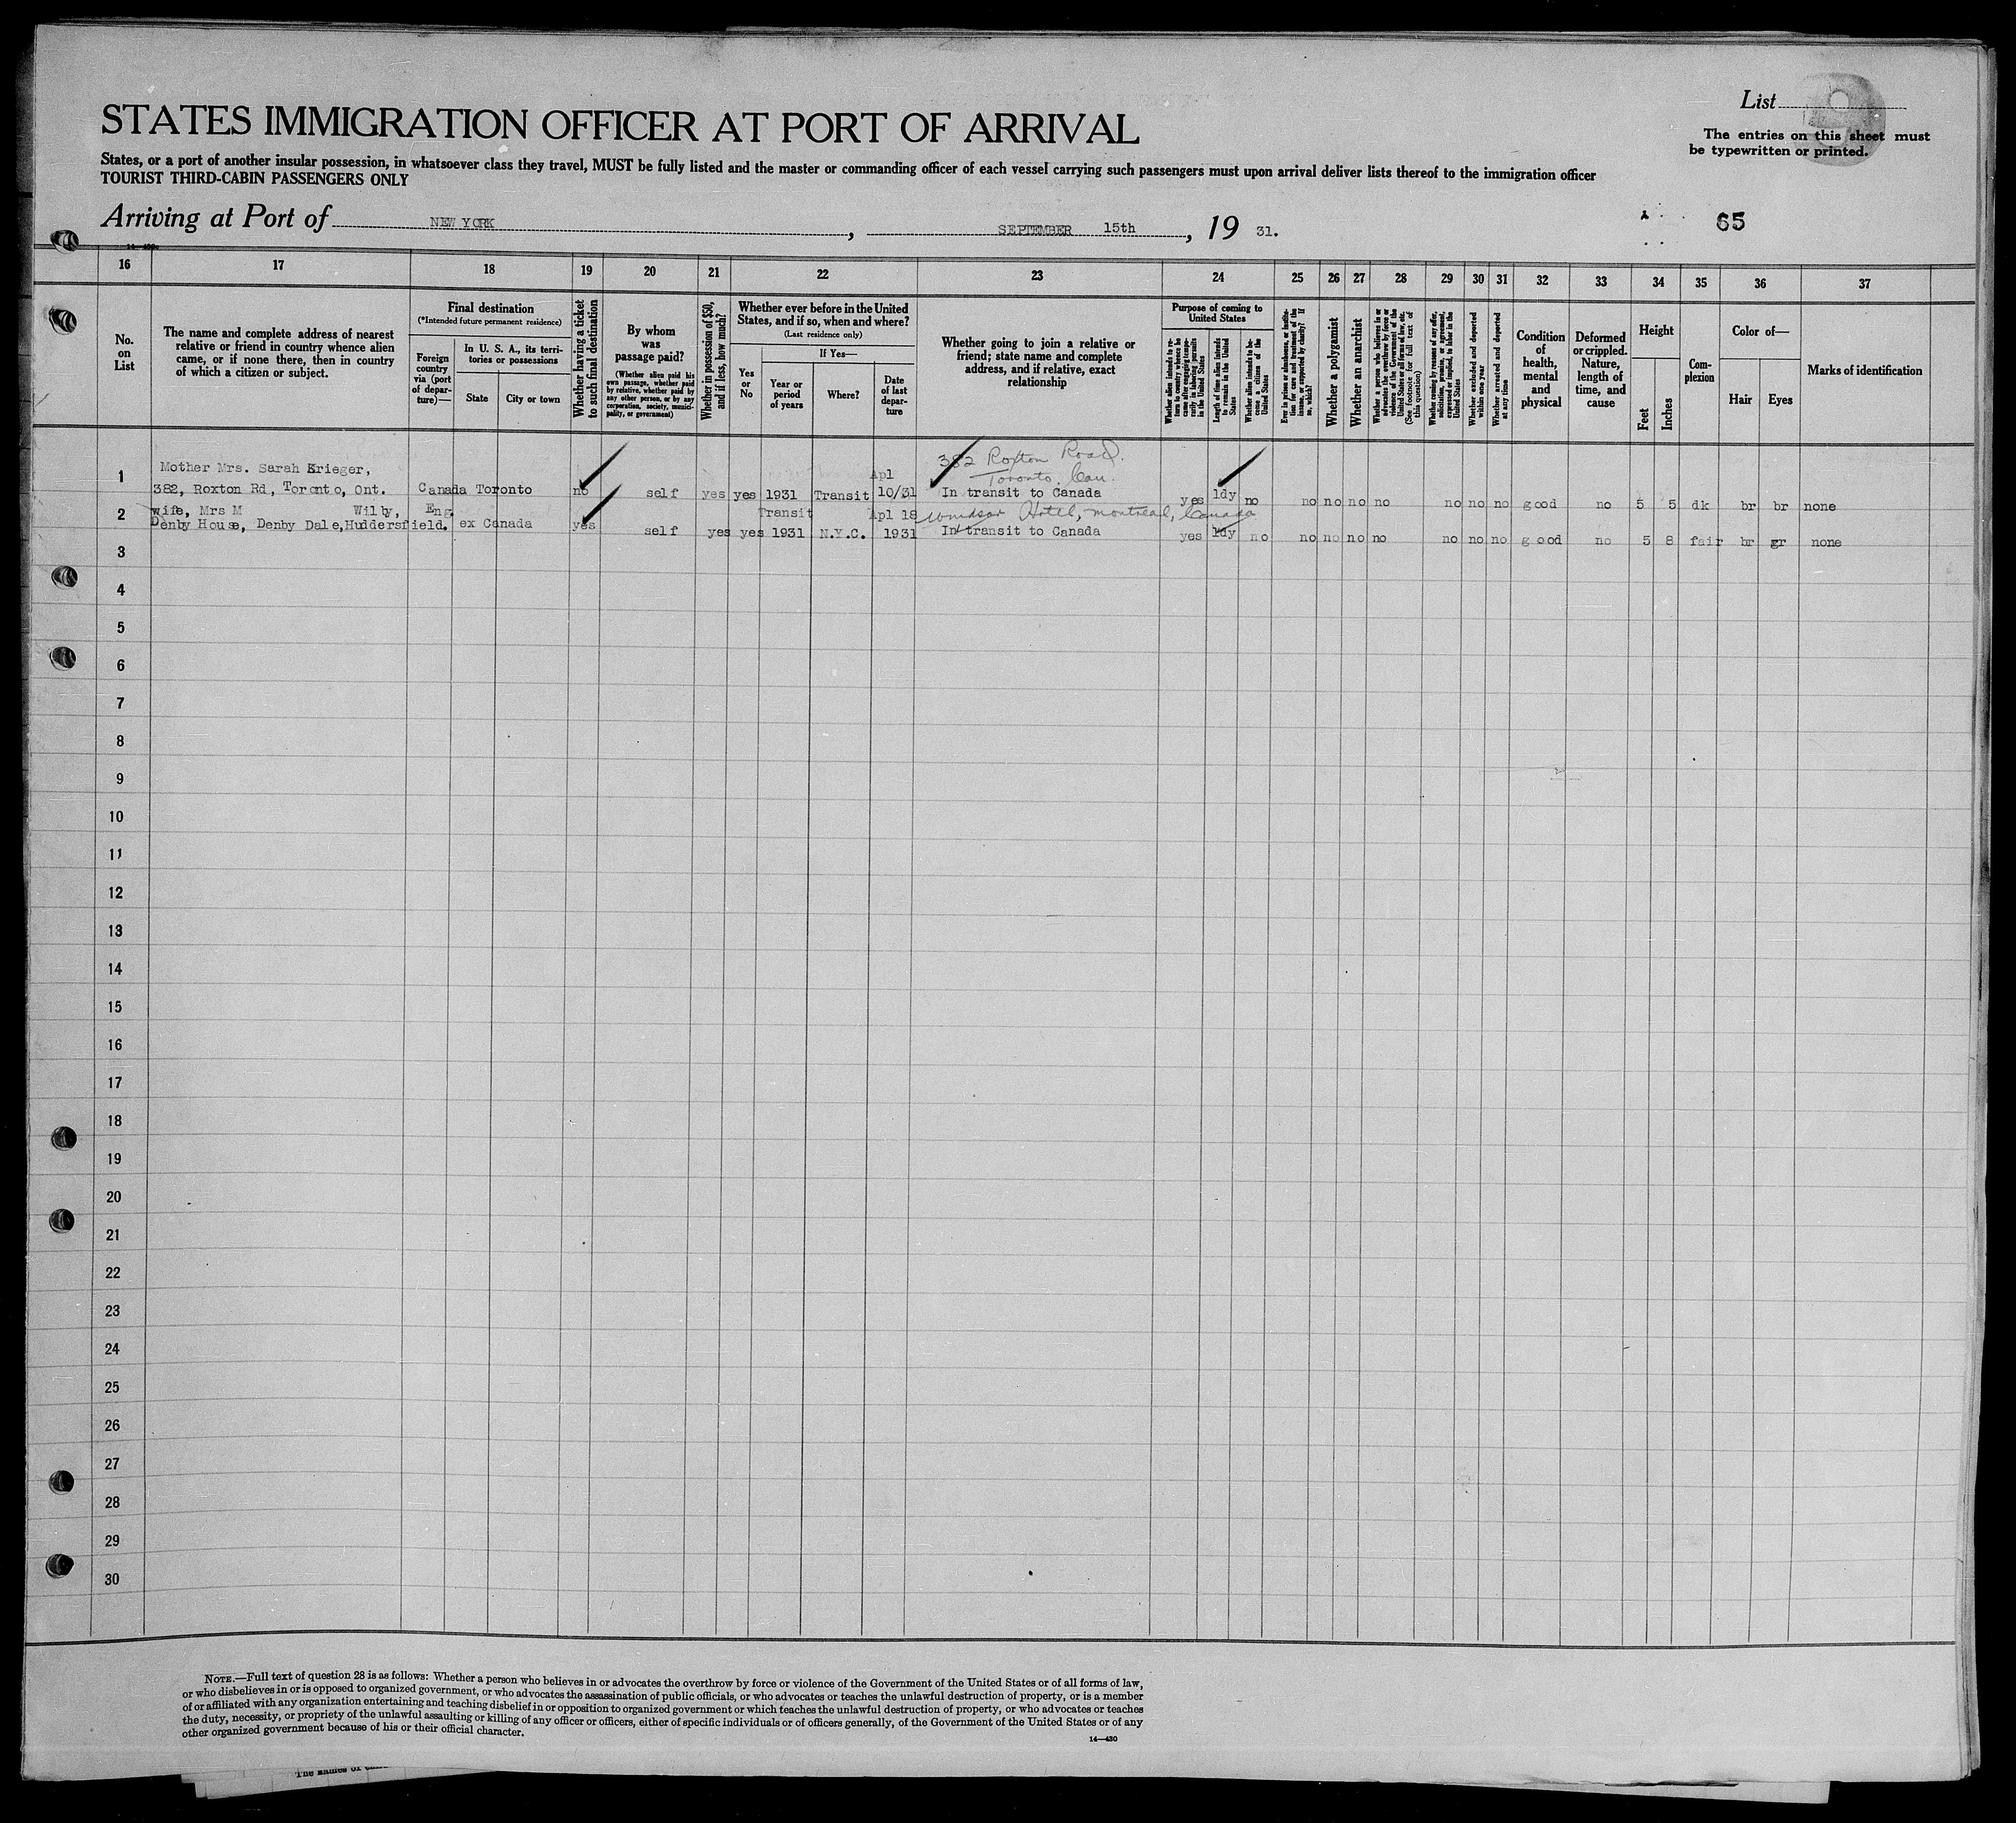 List
The entries on this sheet must
be typewritten or printed.
STATES IMMIGRATION OFFICER AT PORT OF ARRIVAL
States, or a port of another insular possession, in whatsoever class they travel, MUST be fully listed and the master or commanding officer of each vessel carrying such passengers must upon arrival deliver lists thereof to the immigration officer
TOURIST THIRD-CABIN PASSENGERS ONLY
Arriving at Port of NEW YORK, SEPTEMBER 15th, 19 31.
65
16 17 18 19 20 21 22 23 24 25 26 27 28 29 30 31 32 33 34 35 36 37
No.
on
List
The name and complete address of nearest
relative or friend in country whence alien
came, or if none there, then in country
of which a citizen or subject.
Final destination
(*Intended future permanent residence)
Foreign
country
via (port
of depar-
ture)—
In U. S. A., its terri-
tories or possessions
State
City or town
Whether having a ticket
to such final destination
By whom
was
passage paid?
(Whether alien paid his
own passage, whether paid
by relative, whether paid by
any other person, or by any
corporation, society, munici-
pality, or government)
Whether in possession of $50,
and if less, how much?
Whether ever before in the United
States, and if so, when and where?
(Last residence only)
Yes
or
No
If Yes—
Year or
period
of years
Where?
Date
of last
depar-
ture
Whether going to join a relative or
friend; state name and complete
address, and if relative, exact
relationship
Purpose of coming to
United States
Whether alien intends to re-
turn to country whence he
came after engaging tempo-
rarily in laboring pursuits
in the United States
Length of time alien intends
to remain in the United
States
Whether alien intends to be-
come a citizen of the
United States
Ever in prison or almshouse, or institu-
tion for care and treatment of the
insane, or supported by charity? If
so, which?
Whether a polygamist
Whether an anarchist
Whether a person who believes in or
advocates the overthrow by force or
violence of the Government of the
United States or all forms of law, etc.
(See footnote for full text of
this question)
Whether coming by reasons of any offer,
solicitation, promise, or agreement,
expressed or implied, to labor in the
United States
Whether excluded and deported
within one year
Whether arrested and deported
at any time
Condition
of
health,
mental
and
physical
Deformed
or crippled.
Nature,
length of
time, and
cause
Height
Feet
Inches
Com-
plexion
Color of—
Hair
Eyes
Marks of identification
382 Roxton Road.
Toronto. Can.
1 Mother Mrs. Sarah Krieger,
Apl
382, Roxton Rd, Toronto, Ont. Canada Toronto no self yes yes 1931 Transit 10/31 In transit to Canada yes 1dy no no no no no no no no good no 5 5 dk br br none
2 wife, Mrs M Wilby, Eng. Transit Apl 18 Windsor Hotel, Montreal, Canada
Denby House, Denby Dale, Huddersfield. ex Canada yes self yes yes 1931 N.Y.C. 1931 In transit to Canada yes 1dy no no no no no no no no good no 5 8 fair br gr none
3
4
5
6
7
8
9
10
11
12
13
14
15
16
17
18
19
20
21
22
23
24
25
26
27
28
29
30
NOTE.—Full text of question 28 is as follows: Whether a person who believes in or advocates the overthrow by force or violence of the Government of the United States or of all forms of law,
or who disbelieves in or is opposed to organized government, or who advocates the assassination of public officials, or who advocates or teaches the unlawful destruction of property, or is a member
of or affiliated with any organization entertaining and teaching disbelief in or opposition to organized government or which teaches the unlawful destruction of property, or who advocates or teaches
the duty, necessity, or propriety of the unlawful assaulting or killing of any officer or officers, either of specific individuals or of officers generally, of the Government of the United States or of any
other organized government because of his or their official character.
14—430